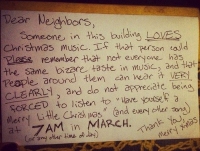 Dear Neighbors,
Someone in this building LOVES
Christmas music. If that person could
Please remember that not everyone has
the same bizarre taste in music, and that
People around them can hear it VERY
CLEARLY, and do not appreciate being
FORCED to listen to "Have yourself a
Merry Little Christmas" (and every other song)
at 7AM in MARCH.
(or any other time of day)
Thank You!
merry Xmas